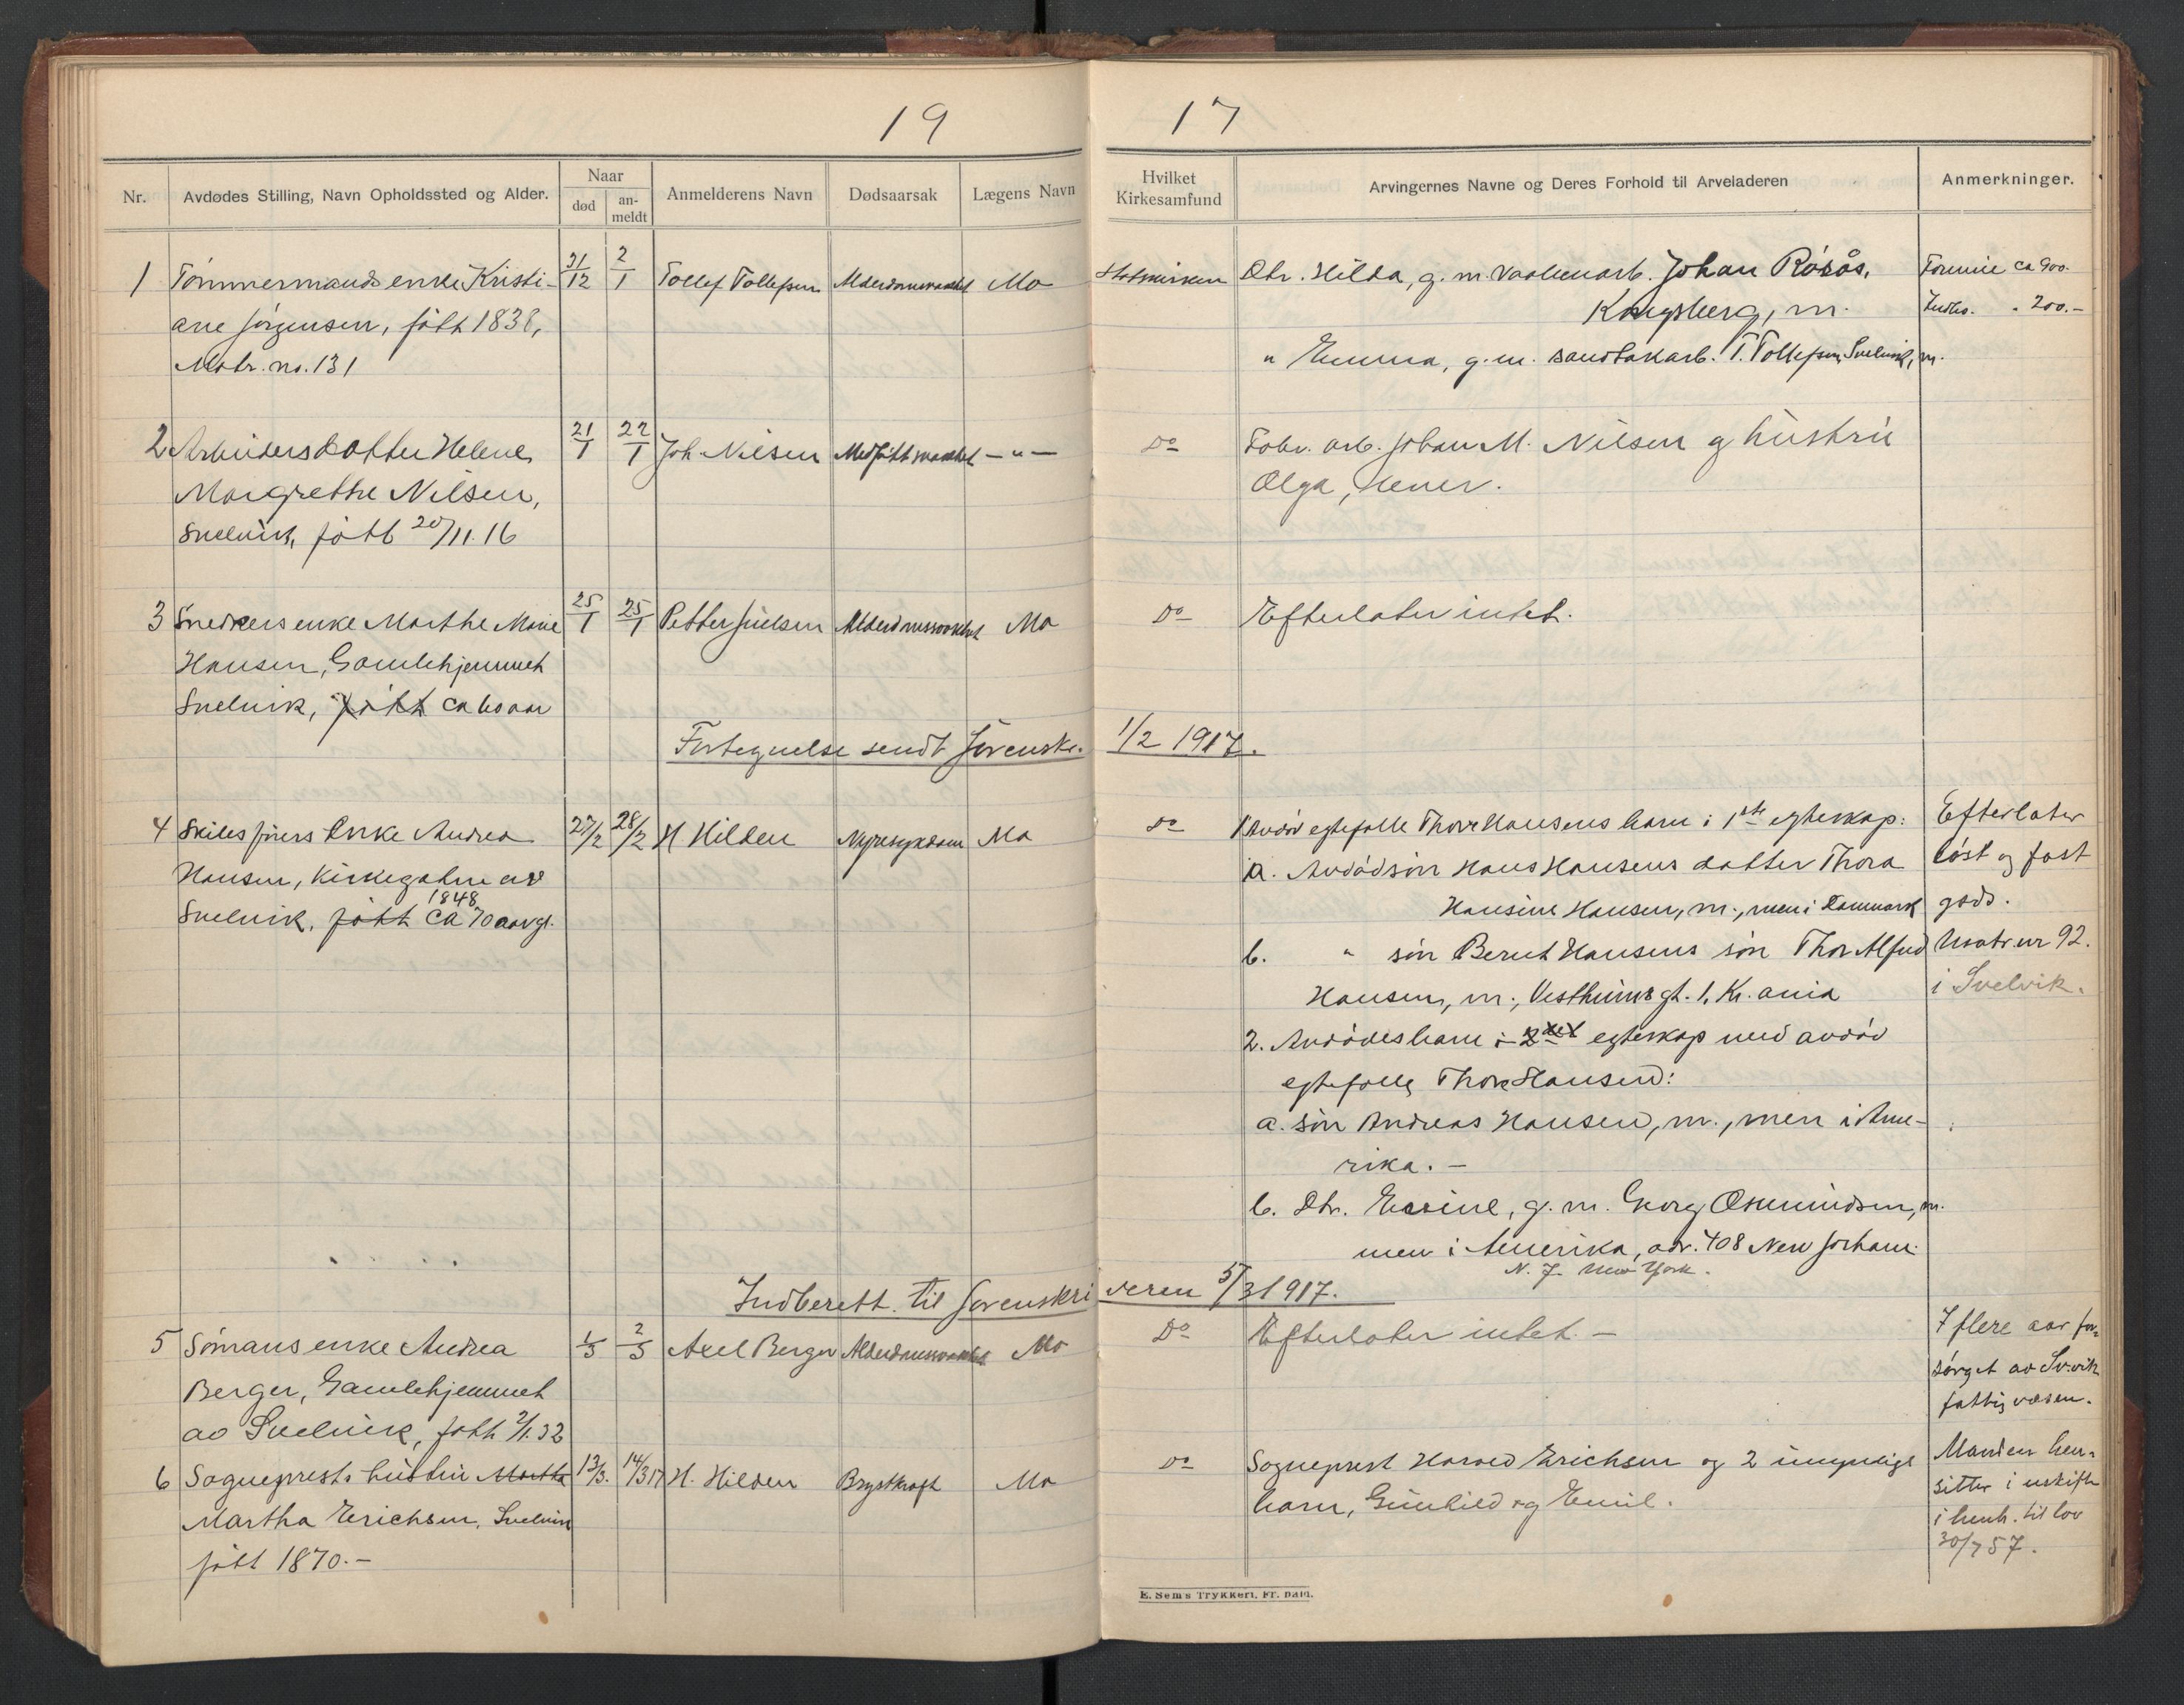 19 17
Nr.
Avdødes Stilling, Navn Opholdssted og Alder.
Naar
død
an-
meldt
Anmelderens Navn
Dødsaarsak
Lægens Navn
Hvilket
Kirkesamfund
Arvingernes Navne og Deres Forhold til Arveladeren
Anmerkninger.
1 Tømmermands enke Kristi- 31/12 2/1 Tollef Tollefsen Alderdomssvakhet Mo Statskirken Dtr. Hilda, g. m. Vaabenarb. Johan Røsås, Formue ca 900.-
ane Jørgensen, født 1838, Kongsberg, m. Indbo. " 200.-
Matr. no. 131 " Emma, g. m. sandtakarb. T. Tollefsen, Svelvik, m.
2 Arbeidersdatter Helene 21/1 22/1 Joh. Nilsen Medfødt svakhet -"- Do Fabr. arb. Johan M. Nilsen og hustru
Margrethe Nilsen, Olga, lever.
Svelvik, født 20/11.16
3 Snedkers enke Marthe Marie 25/1 25/1 Petter Juelsen Alderdomssvakhet Mo Do Efterlater intet.
Hansen, Gamlehjemmet
Svelvik, født ca 60 aar
Fortegnelse sendt Sorenskr. 1/2 1917.
4 Skibsførers Enke Andrea 27/2 28/2 H Hilden Nyresykdom Mo Do 1 Avdød egtefælle Thor Hansens barn i 1ste egteskap: Efterlater
Hansen, Kirkegatene av a. Avdød søn Hans Hansens datter Thora løst og fast
1848
Svelvik, født ca 70 aar gl. Hansine Hansen, m., men i Danmark gods.
b. " søn Bernt Hansens søn Thor Alfred Matr. nr 92.
Hansen, m., Vestheims gt. 1, Kr.ania i Svelvik.
2. Avdødes barn i 2det egteskap med avdød
egtefælle Thor Hansen:
a. søn Andreas Hansen, m., men i Ame-
rika. -
b. Dtr. Essine, g. m. Georg Osmundsen, m.
men i Amerika, adr. 408 New
N. J. New York.
Indberett. til Sorenskriveren 5/3 1917.
5 Sømans enke Andrea 1/3 2/3 Axel Berger Alderdomssvakhet Mo Do Efterlater intet. - I flere aar for-
Berger, Gamlehjemmet sørget av Sv.vik
av Svelvik, født 2/1.32 fattigvæsen.
6 Sogneprests hustru Martha 13/3. 14/3 17 H. Hilden Brystkræft Mo Do Sogneprest Harald Erichsen og 2 umyndige Manden hen-
Martha Erichsen, Svelvik barn, Gunhild og Emil. sitter i uskifte
født 1870.- i henh. til lov
30/7 57.
E. Sem's Trykkeri, Fr. hald.